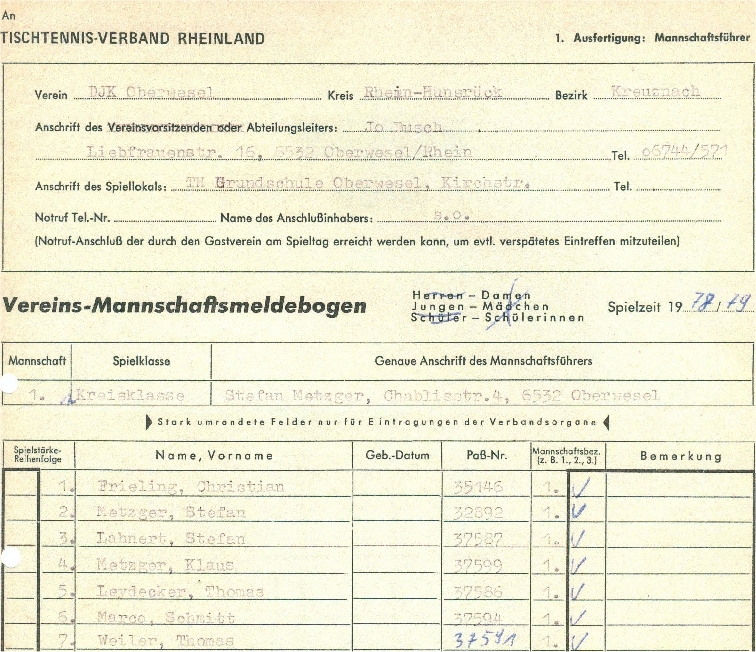 An
TISCHTENNIS-VERBAND RHEINLAND
1. Ausfertigung: Mannschaftsführer
Verein DJK Oberwesel Kreis Rhein-Hunsrück Bezirk Kreuznach
Anschrift des Vereinsvorsitzenden oder Abteilungsleiters: Jo Busch
Liebfrauenstr. 16, 6532 Oberwesel/Rhein Tel. 06744/571
Anschrift des Spiellokals: TH Grundschule Oberwesel, Kirchstr. Tel.
Notruf Tel.-Nr. Name des Anschlußinhabers: s.o.
(Notruf-Anschluß der durch den Gastverein am Spieltag erreicht werden kann, um evtl. verspätetes Eintreffen mitzuteilen)
Vereins-Mannschaftsmeldebogen
Herren – Damen
Jungen – Mädchen
Schüler – Schülerinnen
Spielzeit 19 78/79
Mannschaft Spielklasse Genaue Anschrift des Mannschaftsführers
1. Kreisklasse Stefan Metzger, Chablisstr.4, 6532 Oberwesel
Stark umrandete Felder nur für Eintragungen der Verbandsorgane
Spielstärke-Reihenfolge Name, Vorname Geb.-Datum Paß-Nr. Mannschaftsbez. (z. B. 1., 2., 3.) Bemerkung
1. Frieling, Christian 35146 1. ✓
2. Metzger, Stefan 32892 1. ✓
3. Lahnert, Stefan 37587 1. ✓
4. Metzger, Klaus 37599 1. ✓
5. Leydecker, Thomas 37586 1. ✓
6. Marco, Schmitt 37594 1. ✓
7. Weiler, Thomas 37591 1. ✓